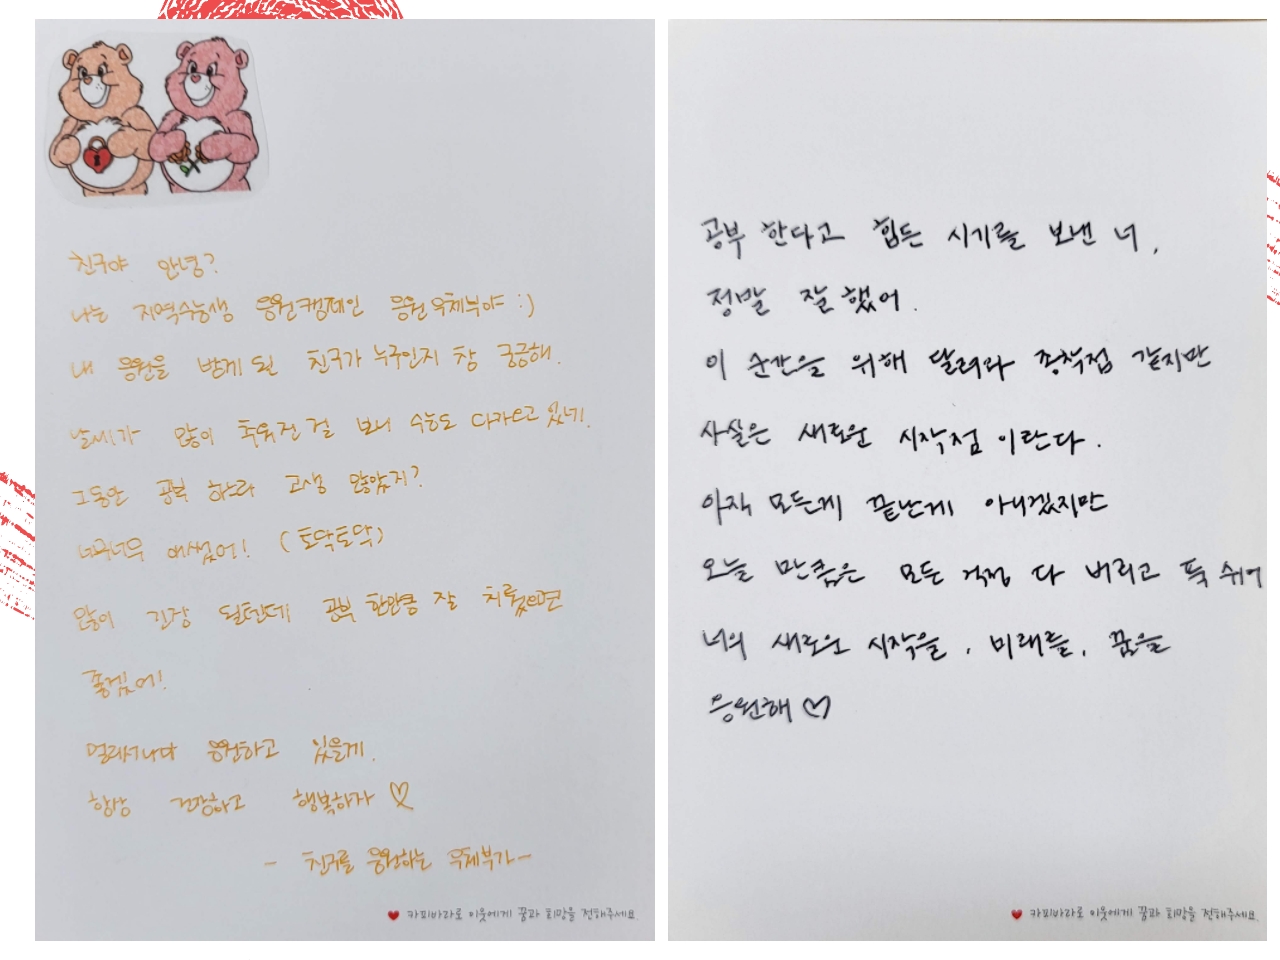 친구야 안녕?
나는 지역수능생 응원캠페인 응원우체부야 :)
내 응원을 받게 된 친구가 누구인지 참 궁금해.
날씨가 많이 추워진 걸 보니 수능도 다가오고 있네.
그동안 공부 하느라 고생 많았지?
너무너무 애썼어! (토닥토닥)
많이 긴장 될텐데 공부 한만큼 잘 치뤘으면
좋겠어!
멀리서나마 응원하고 있을게.
항상 건강하고 행복하자 ♡
- 친구를 응원하는 우체부가 -
♥ 카피바라로 이웃에게 꿈과 희망을 전해주세요
공부 한다고 힘든 시기를 보낸 너,
정말 잘 했어.
이 순간을 위해 달려라 종착점 같지만
사실은 새로운 시작점 이란다.
아직 모든게 끝난게 아니겠지만
오늘 만큼은 모든 걱정 다 버리고 푹 쉬어
너의 새로운 시작을, 미래를, 꿈을
응원해 ♡
♥ 카피바라로 이웃에게 꿈과 희망을 전해주세요.